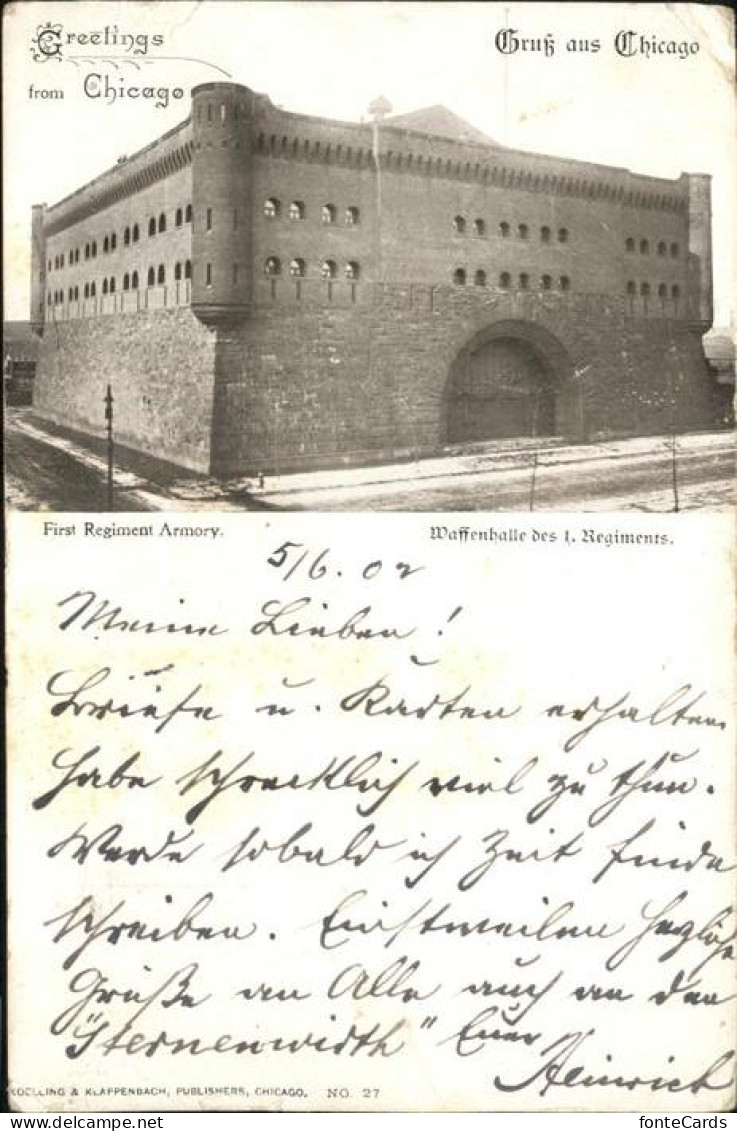 Greetings
from Chicago
Gruß aus Chicago
First Regiment Armory.
Waffenhalle des 1. Regiments.
5/6. 02
Meine Lieben!
Briefe u. Karten erhalten
habe schrecklich viel zu thun.
Werde sobald ich Zeit finde
schreiben. Einstweilen herzliche
Grüße an Alle auch an den
"Sternenwirth" Euer
Heinrich
KOELLING & KLAPPENBACH, PUBLISHERS, CHICAGO. NO. 27
fonteCards